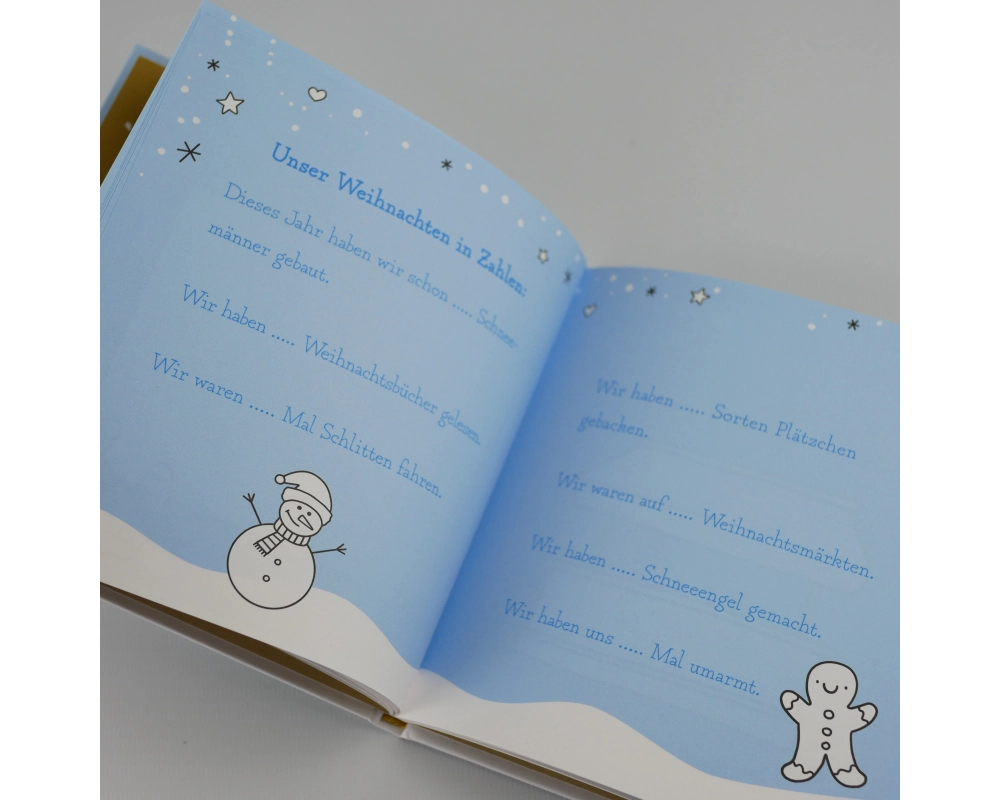 Unser Weihnachten in Zahlen:
Dieses Jahr haben wir schon ..... Schnee-
männer gebaut.
Wir haben ..... Weihnachtsbücher gelesen.
Wir waren ..... Mal Schlitten fahren.
Wir haben ..... Sorten Plätzchen
gebacken.
Wir waren auf ..... Weihnachtsmärkten.
Wir haben ..... Schneeengel gemacht.
Wir haben uns ..... Mal umarmt.